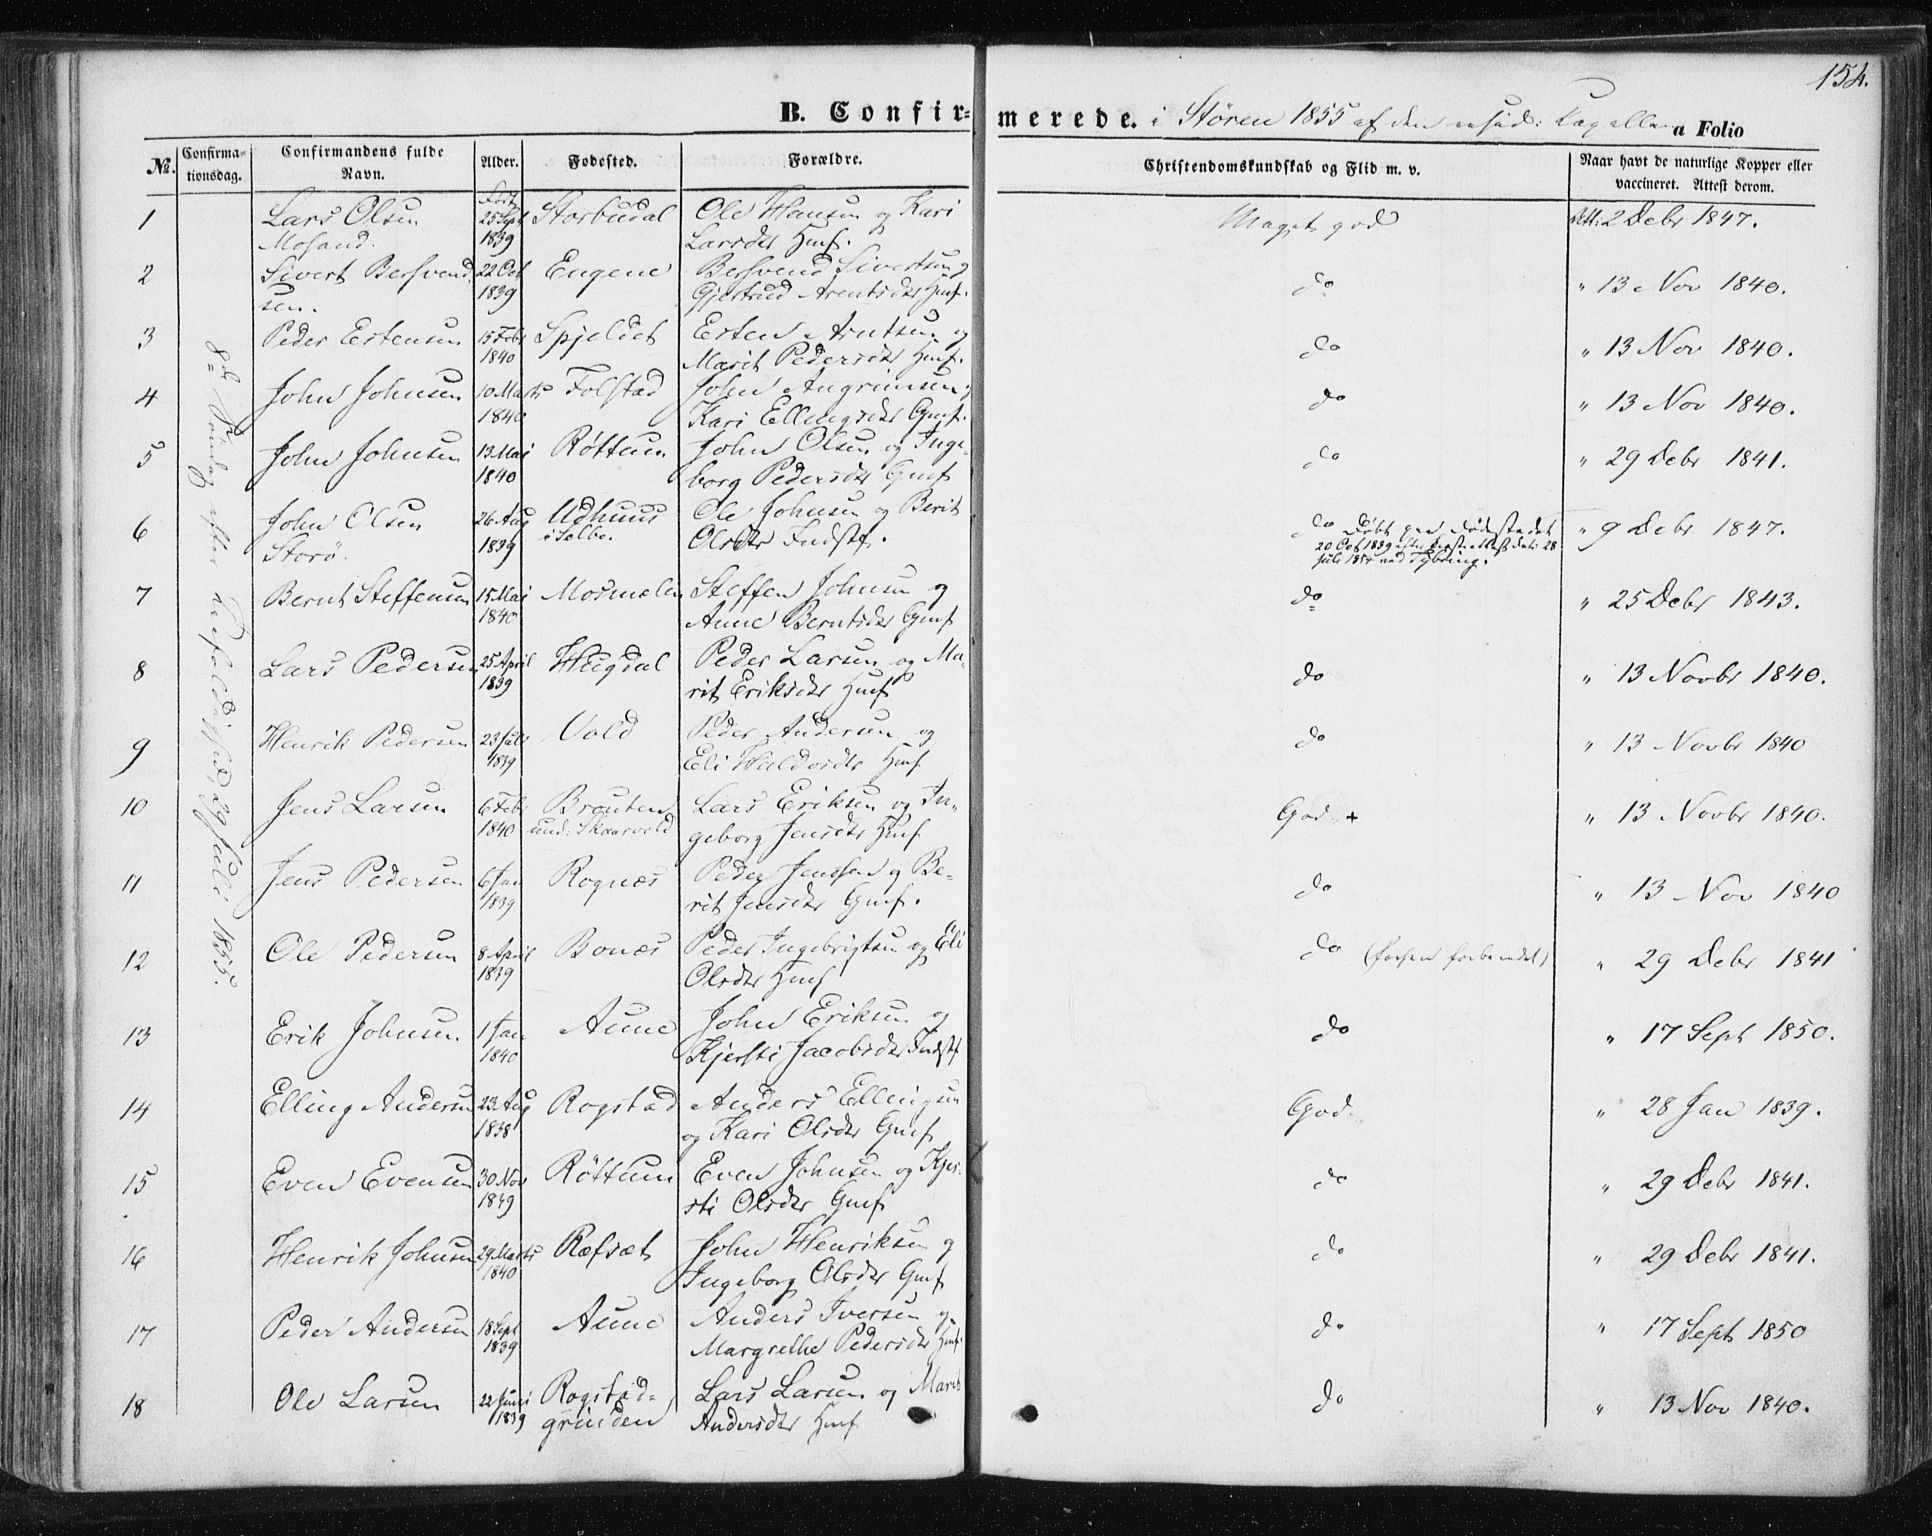 154.
B. Confir-
merede. i Støren 1855 af den resid: Capellan
a Folio
№. Confirma-tionsdag. Confirmandens fulde Navn. Alder. Fødested. Forældre. Christendomskundskab og Flid m. v. Naar havt de naturlige Kopper eller vaccineret. Attest derom.
8de Søndag efter Trefoldighed, 29 Juli 1855.
1 Lars Olsen Født 25 Sept Storbudal Ole Hansen og Kari Meget god Att: 2 Debr 1847.
Mosand. 1839 Larsdtr Hmf.
2 Sivert Bersvend 22 Oct Engene Bersvend Sivertsen og do " 13 Nov 1840.
sen. 1839 Gjertrud Arentsdtr Hmf.
3 Peder Estensen 15 Febr Spjeldet Esten Arntsen og do " 13 Nov 1840.
1840 Marit Pedersdtr Hmf.
4 John Johnsen 10 Marts Folstad John Angrimsen og do " 13 Nov 1840.
1840 Kari Ellingsdtr Gmf.
5 John Johnsen 13 Mai Røttum John Olsen og Inge- do " 29 Debr 1841.
1840 borg Pedersdtr Gmf
6 John Olsen 26 Aug Udhuus Ole Johnsen og Berit do Døbt paa Fødestedet " 9 Debr 1847.
Storø. 1839 i Selbo. Olsdtr Indstf. 20 Oct 1839 efter Præsteattest dat: 28
Juli 1854 ved Tybring.
7 Bernt Steffensen 15 Mai Mosmælen Steffen Johnsen og do " 25 Debr 1843.
1840 Anne Berntsdtr Gmf
8 Lars Pedersen 25 April Hugdal Peder Larsen og Ma- do " 13 Novbr 1840.
1839 rit Eriksdtr Hmf
9 Henrik Pedersen 23 Juli Vold Peder Andersen og do " 13 Novbr 1840
1839 Eli Haldosdtr Hmf
10 Jens Larsen 6 Febr Brouten Lars Eriksen og In- God + " 13 Novbr 1840.
1840 und: Skaarvold geborg Jensdtr Hmf
11 Jens Pedersen 6 Jan Rognæs Peder Jenssen og Be- do " 13 Nov 1840
1839 rit Jensdtr Gmf.
12 Ole Pedersen 8 April Bonæs Peder Ingebrigtsen og Eli do " 29 Debr 1841
1839 Olsdtr Hmf
13 Erik Johnsen 1 Jan Aune John Eriksen og do " 17 Sept 1850.
1840 Kjersti Jacobsdtr Indstf
14 Elling Andersen 23 Aug Rogstad Anders Ellingsen God. " 28 Jan 1839.
1838 og Kari Olsdtr Gmf
15 Even Evensen 30 Nov Røttum Even Johnsen og Kjer- do " 29 Debr 1841.
1839 sti Olsdtr Gmf
16 Henrik Johnsen 29 Marts Refsæt John Henriksen og do " 29 Debr 1841.
1840 Ingeborg Olsdtr Gmf
17 Peder Andersen 18 Sept Aune Anders Iversen og do " 17 Sept 1850
1839 Margrethe Pedersdtr Hmf
18 Ole Larsen 22 Juni Rogstad- Lars Larsen og Marit do " 13 Nov 1840.
1839 grinden Andersdtr Hmf